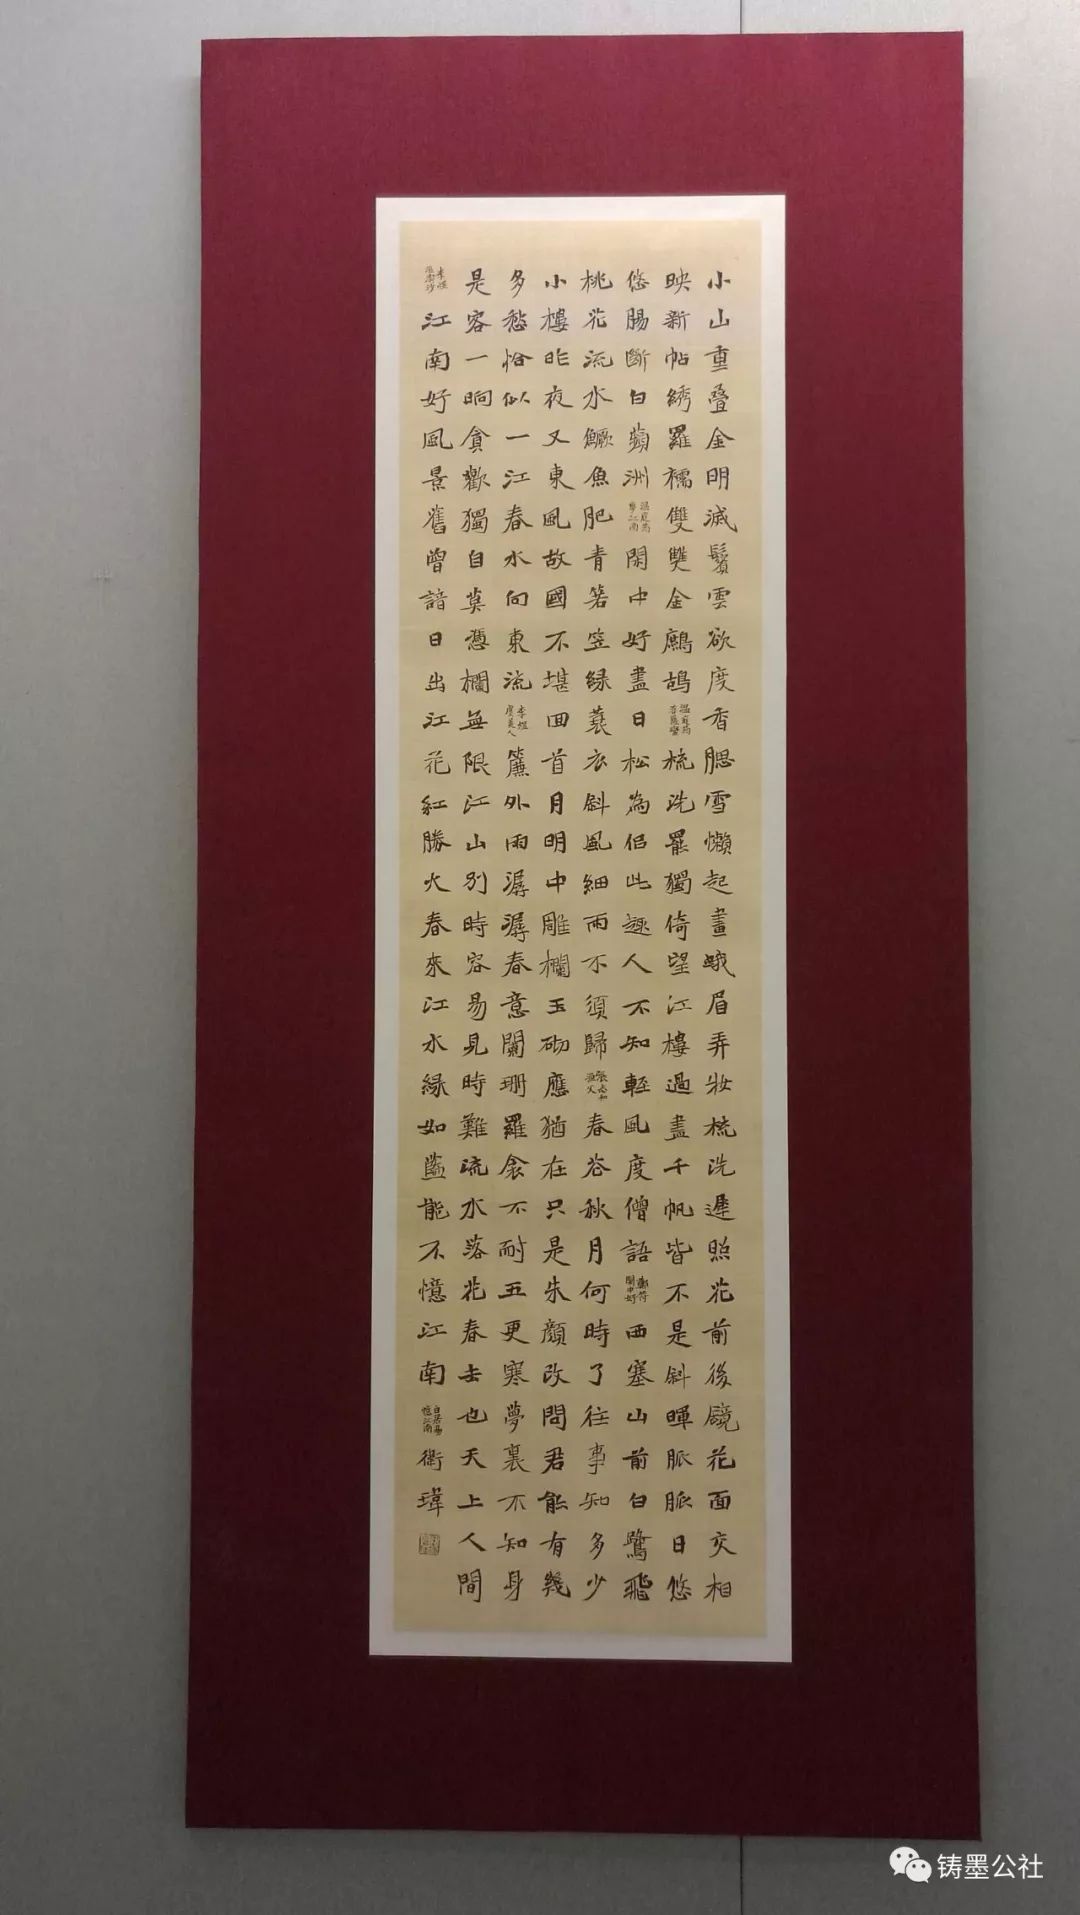 小山重叠金明滅鬢雲欲度香腮雪懶起畫蛾眉弄妝梳洗遲照花前後鏡花面交相
映新帖綉羅襦雙雙金鷓鴣温庭筠菩薩蠻梳洗罷獨倚望江樓過盡千帆皆不是斜暉脈脈日悠
悠腸斷白蘋洲温庭筠夢江南閑中好盡日松為侣此趣人不知輕風度僧語鄭符閑中好西塞山前白鷺飛
桃花流水鱖魚肥青箬笠緑蓑衣斜風細雨不須歸張志和漁父春花秋月何時了往事知多少
小樓昨夜又東風故國不堪回首月明中雕欄玉砌應猶在只是朱顔改問君能有幾
多愁恰似一江春水向東流李煜虞美人簾外雨潺潺春意闌珊羅衾不耐五更寒夢裏不知身
是客一晌貪歡獨自莫憑欄無限江山别時容易見時難流水落花春去也天上人間
李煜浪淘沙江南好風景舊曾諳日出江花紅勝火春來江水緑如藍能不憶江南白居易憶江南衛瑋
铸墨公社